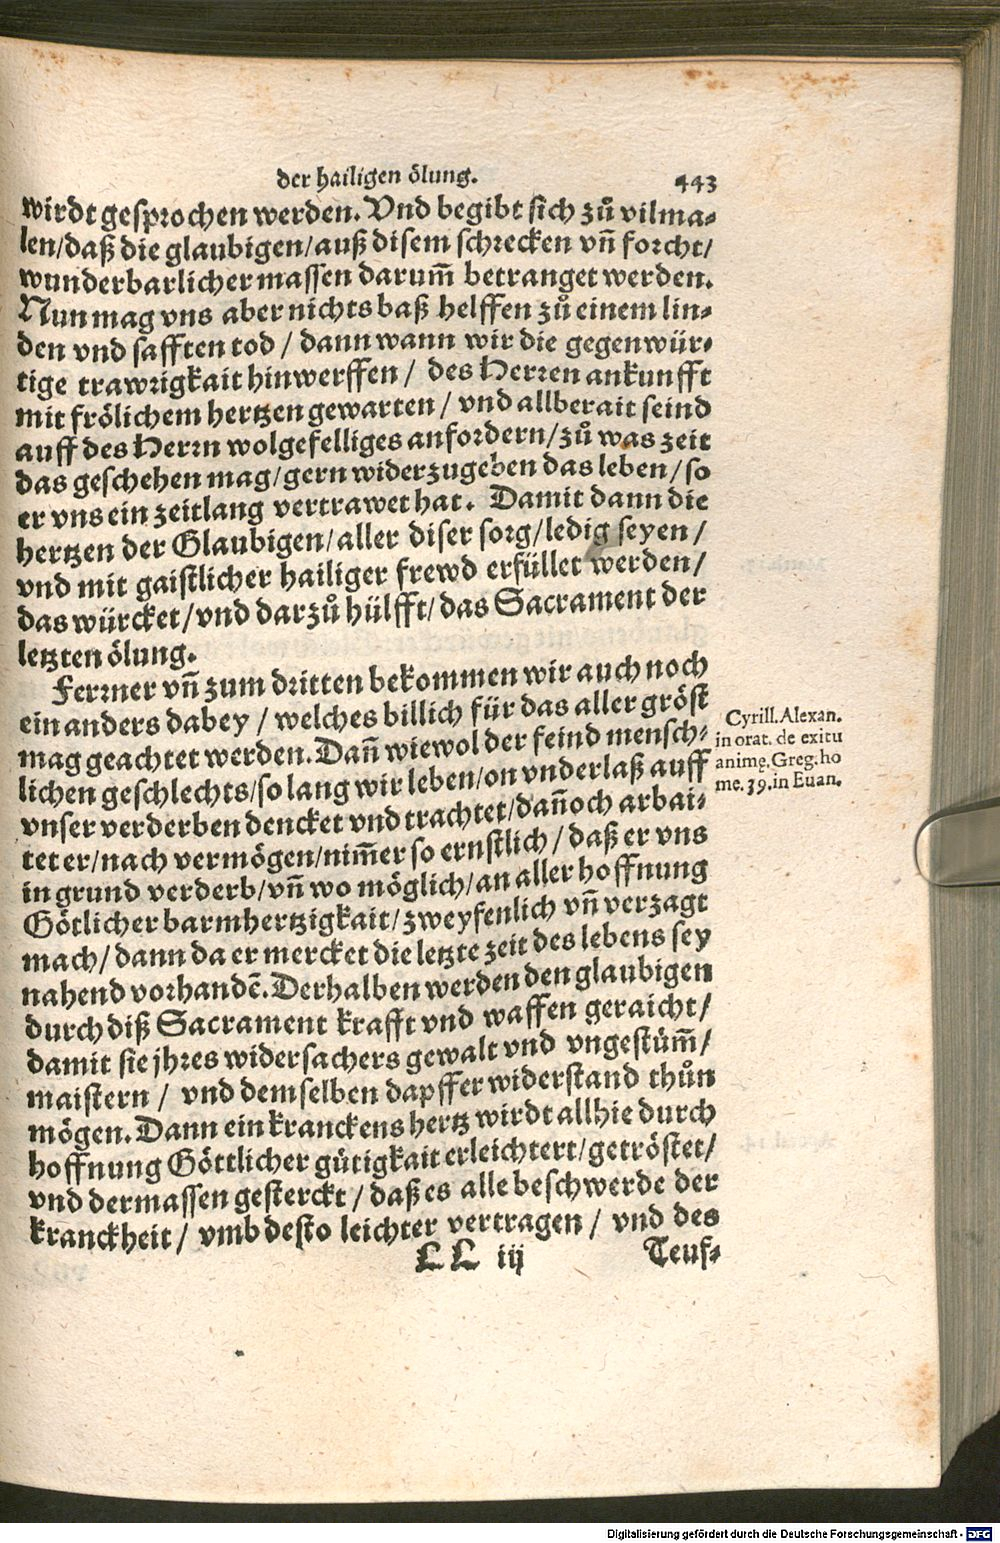 der hailigen ölung. 443
wirdt gesprochen werden. Vnd begibt sich zů vilma-
len/daß die glaubigen/auß disem schrecken vñ forcht/
wunderbarlicher massen darum̃ betranget werden.
Nun mag vns aber nichts baß helffen zů einem lin-
den vnd safften tod / dann wann wir die gegenwür-
tige trawrigkait hinwerffen / des Herren ankunfft
mit frölichem hertzen gewarten / vnd allberait seind
auff des Herrn wolgefelliges anfordern/zů was zeit
das geschehen mag/gern widerzugeben das leben/so
er vns ein zeitlang vertrawet hat. Damit dann die
hertzen der Glaubigen/aller diser sorg/ledig seyen/
vnd mit gaistlicher hailiger frewd erfüllet werden/
das würcket/vnd darzů hülfft/das Sacrament der
letzten ölung.
Ferrner vñ zum dritten bekommen wir auch noch
ein anders dabey / welches billich für das aller gröst
mag geachtet werden. Dañ wiewol der feind mensch-
lichen geschlechts/so lang wir leben/on vnderlaß auff
vnser verderben dencket vnd trachtet/dañoch arbai-
tet er/nach vermögen/nim̃er so ernstlich / daß er vns
in grund verderb/vñ wo möglich/an aller hoffnung
Götlicher barmhertzigkait/zweyfenlich vñ verzagt
mach/dann da er mercket die letzte zeit des lebens sey
nahend vorhandẽ. Derhalben werden den glaubigen
durch diß Sacrament krafft vnd waffen geraicht/
damit sie jhres widersachers gewalt vnd vngestüm̃/
maistern / vnd demselben dapffer widerstand thůn
mögen. Dann ein kranckens hertz wirdt allhie durch
hoffnung Göttlicher gütigkait erleichtert/getröstet/
vnd dermassen gesterckt / daß es alle beschwerde der
kranckheit / vmb desto leichter vertragen / vnd des
LL iij Teuf-
Cyrill. Alexan.
in orat. de exitu
animę. Greg. ho
me. 39. in Euan.
Digitalisierung gefördert durch die Deutsche Forschungsgemeinschaft - DFG